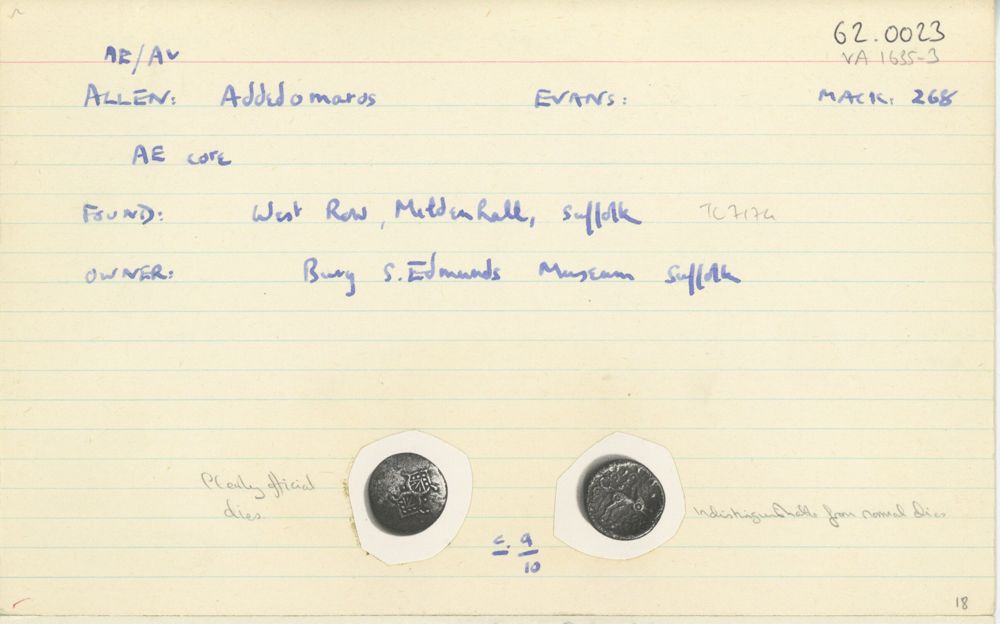 62.0023
VA 1635-3
AE/AV
ALLEN: Addedomaros EVANS: MACK: 268
AE core
FOUND: West Row, Mildenhall, Suffolk TL7174
OWNER: Bury S. Edmunds Museum Suffolk
official
dies
indistinguishable from normal dies
c. 9
10
18